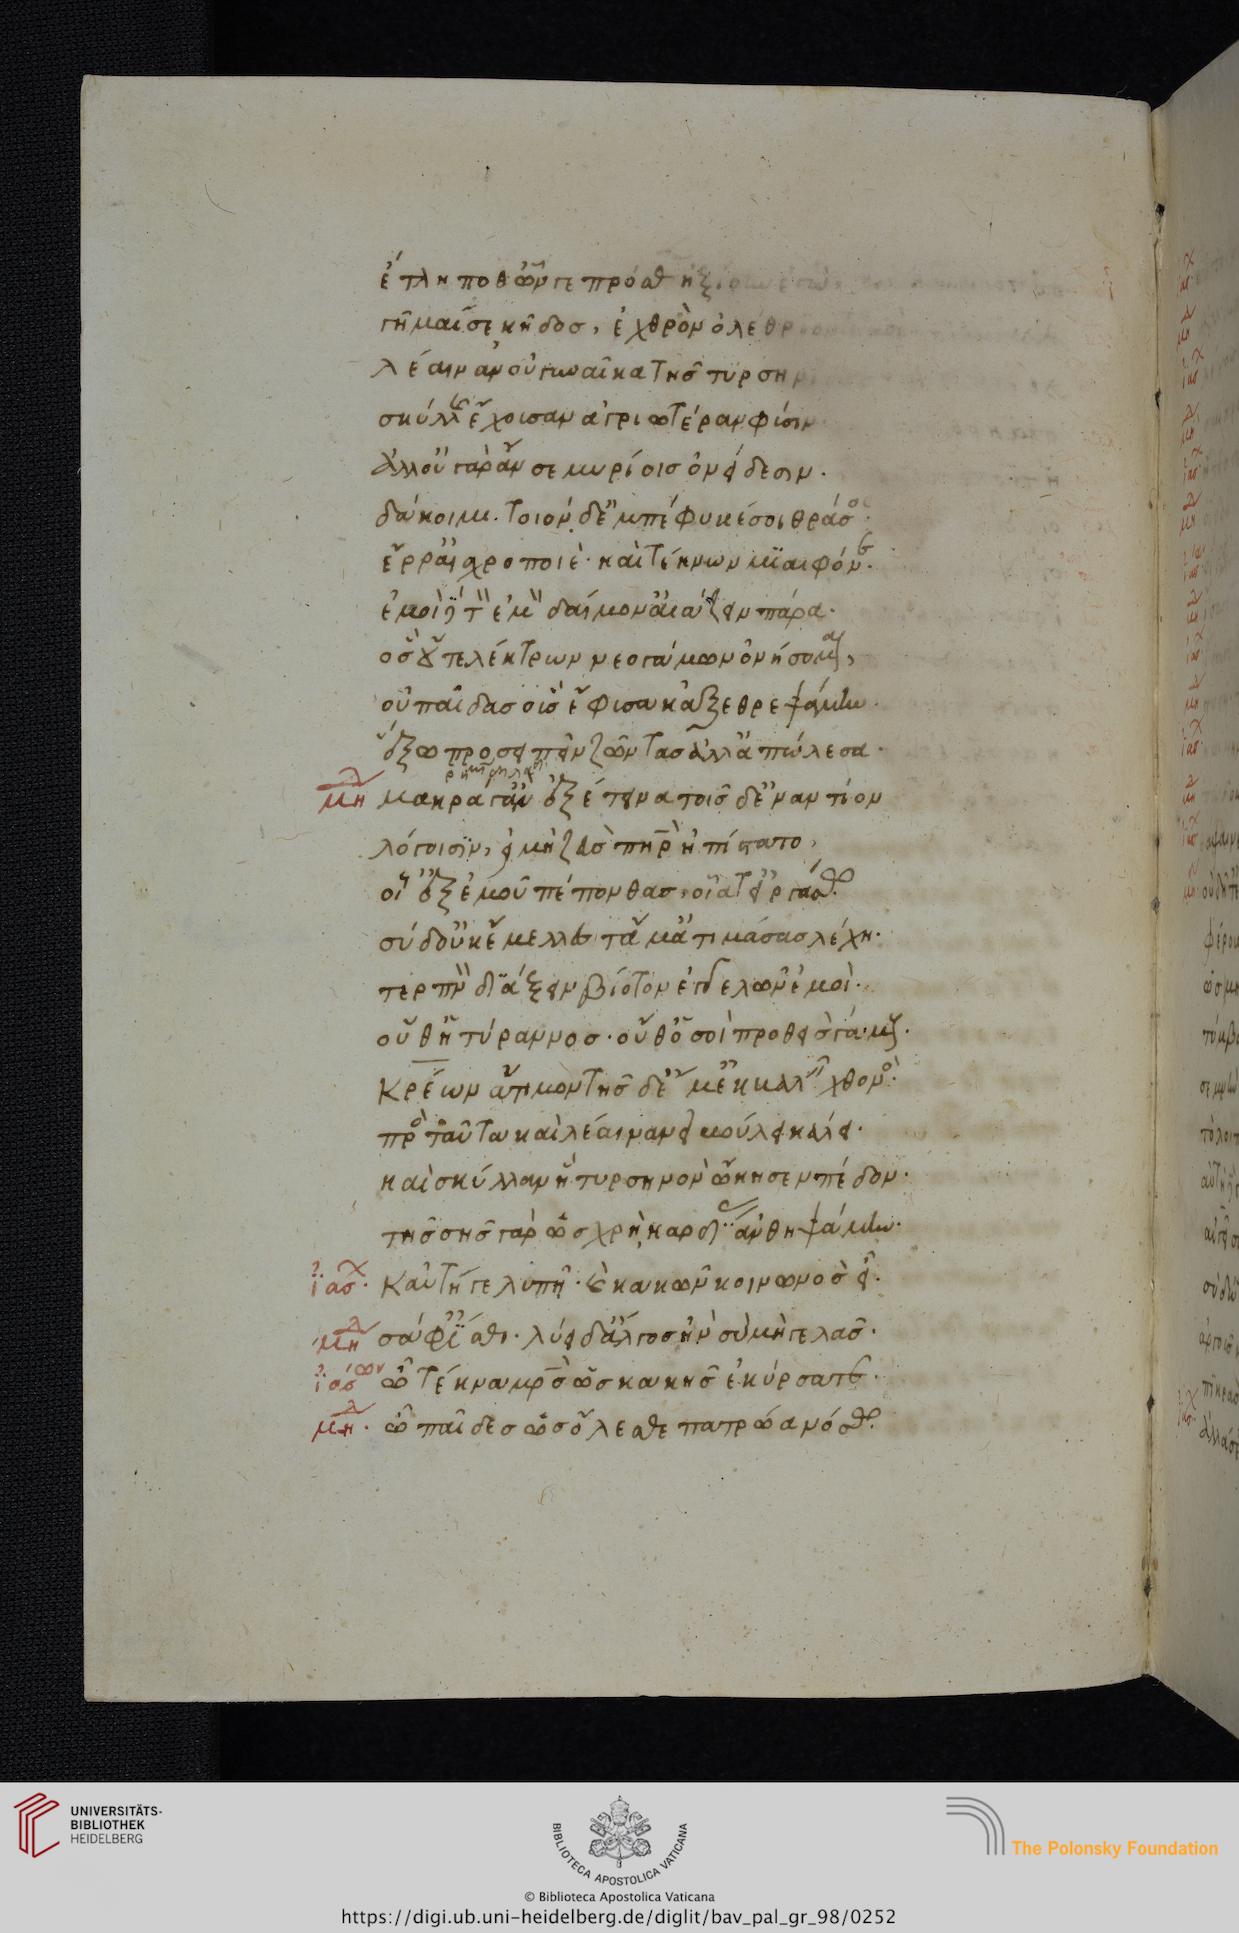 ἔτλη ποθ' ὧν γε πρόσθ' ἠξίουν ἐγὼ
γῆμαί σε κῆδος, ἐχθρὸν ὀλέθρ
λέαιναν οὐ γυναῖκα τῆς τυρσην
σκύλλης ἔχουσαν ἀγριωτέραν φύσιν
ἀλλ' οὐ γὰρ ἄν σε μυρίοις ὀνείδεσιν.
δάκοιμι. τοιόνδ' ἐμπέφυκέ σοι θράσος.
ἔρρ' αἰσχροποιὲ· καὶ τέκνων μιαιφόνε.
ἐμοὶ δὲ τὸν ἐμὸν δαίμον' αἰάζειν πάρα.
ὃς οὔτε λέκτρων νεογάμων ὀνήσομαι,
οὐ παῖδας οὓς ἔφυσα κἀξεθρεψάμην.
ἕξω προσειπεῖν ζῶντας ἀλλ' ἀπώλεσα.
μηδ μακρὰν ἂν ἐξέτεινα τοῖσδ' ἐναντίον
λόγοισιν, εἰ μὴ ζεὺς πατὴρ ἠπίστατο,
οἷ' ἐξ ἐμοῦ πέπονθας, οἷά τ' εἰργάσω.
σὺ δ' οὐκ ἔμελλες τἄμ' ἀτιμάσας λέχη.
τερπνὸν διάξειν βίοτον ἐγγελῶν ἐμοὶ.
οὔθ' ἡ τύραννος. οὔθ' ὅ σοὶ προσθεὶς γάμους.
Κρέων ἄτιμον τῆσδέ μ' ἐκβαλεῖν χθονός.
πρὸς ταῦτα καὶ λέαιναν εἰ βούλει κάλει.
καὶ σκύλλαν ἣ τυρσηνὸν ᾤκησεν πέδον.
τῆς σῆς γὰρ ὡς χρὴ καρδίας ἀνθηψάμην.
ἰάσ. Καὐτή γε λυπῇ. καὶ κακῶν κοινωνὸς εἶ.
μηδ σάφ' ἴσθι. λύει δ' ἄλγος ἢν σὺ μὴ γελᾷς.
ἰάσων ὦ τέκνα μητρὸς ὡς κακῆς ἐκύρσατε.
μηδ. ὦ παῖδες ὡς ὤλεσθε πατρῴᾳ νόσῳ.
UNIVERSITÄTS-
BIBLIOTHEK
HEIDELBERG
BIBLIOTECA APOSTOLICA VATICANA
The Polonsky Foundation
© Biblioteca Apostolica Vaticana
https://digi.ub.uni-heidelberg.de/diglit/bav_pal_gr_98/0252